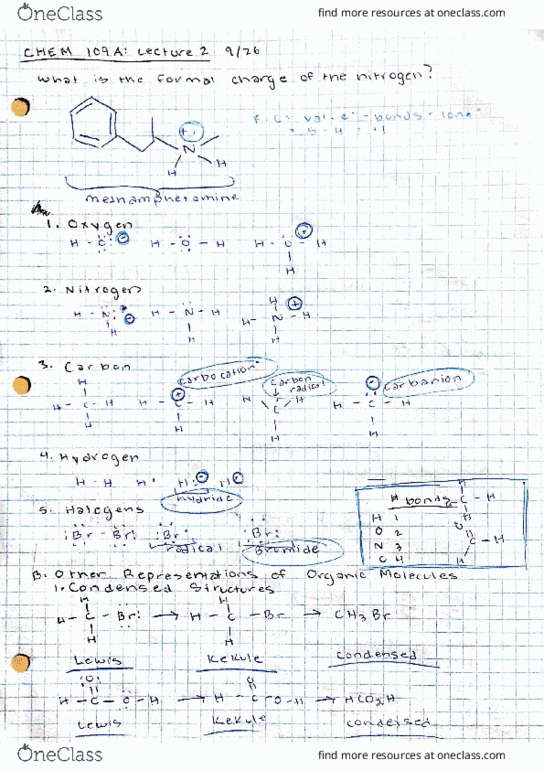 OneClass find more resources at oneclass.com
CHEM 109A: Lecture 2 9/26
What is the formal charge of the nitrogen?
F.C: val e⁻ - bonds - lone
= 5 - 4 = +1
(+)
N
H H
methamphetamine
1. Oxygen
H - O: ⊖ H - O - H H - O - H ⊕
H
2. Nitrogen
H - N: ⊖ H - N - H H - N - H ⊕
H H H H
3. Carbon
carbocation
carbon radical
carbanion
H - C - H H - C - H H C H H - C - H
H H H H
4. Hydrogen
H - H H· H:⊖ H⊖
hydride
5. Halogens
:Br - Br: :Br· :Br:
radical Bromide
# bonds
H 1
O 2
N 3
C 4
B. Other Representations of Organic Molecules
1. Condensed Structures
H - C - Br: → H - C - Br → CH3Br
Lewis Kekule condensed
H - C - O - H → H - C O - H → HCO2H
Lewis Kekule condensed
OneClass find more resources at oneclass.com